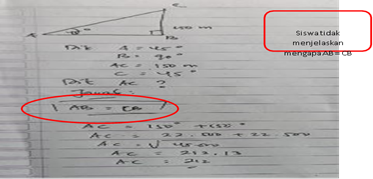 C
150 m
A
B
Dit A = 45°
B = 90°
AC = 150 m
C = 45°
Dit AC ?
Jawab:
AB = CB
AC = 150² + 150²
AC = 22.500 + 22.500
AC = √45.000
AC = 212,13
AC = 212
Siswa tidak
menjelaskan
mengapa AB = CB